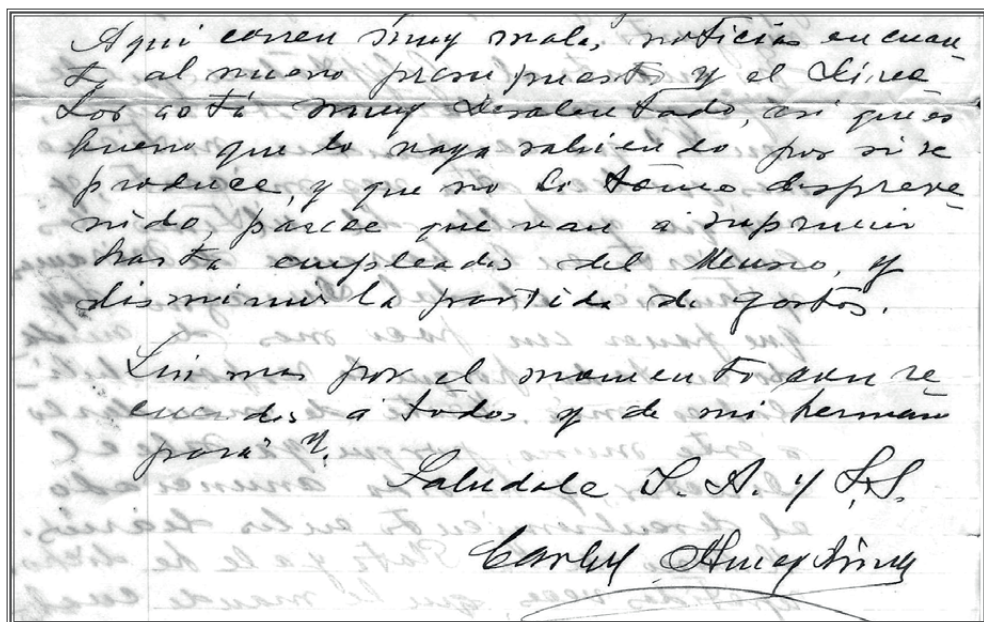 Aqui corren muy malas noticias en cuan-
to al nuevo presupuesto y el Direc-
tor está muy desalentado, asi que es
bueno que lo vaya sabiendo por si se
produce, y que no lo tome despreve-
nido, parece que van a suprimir
hasta empleados del Museo, y
disminuir la partida de gastos.
Sin mas por el momento con re-
cuerdos a todos y de mi hermano
para V.
Saludale S. A. y S.S.
Carlos Ameghino